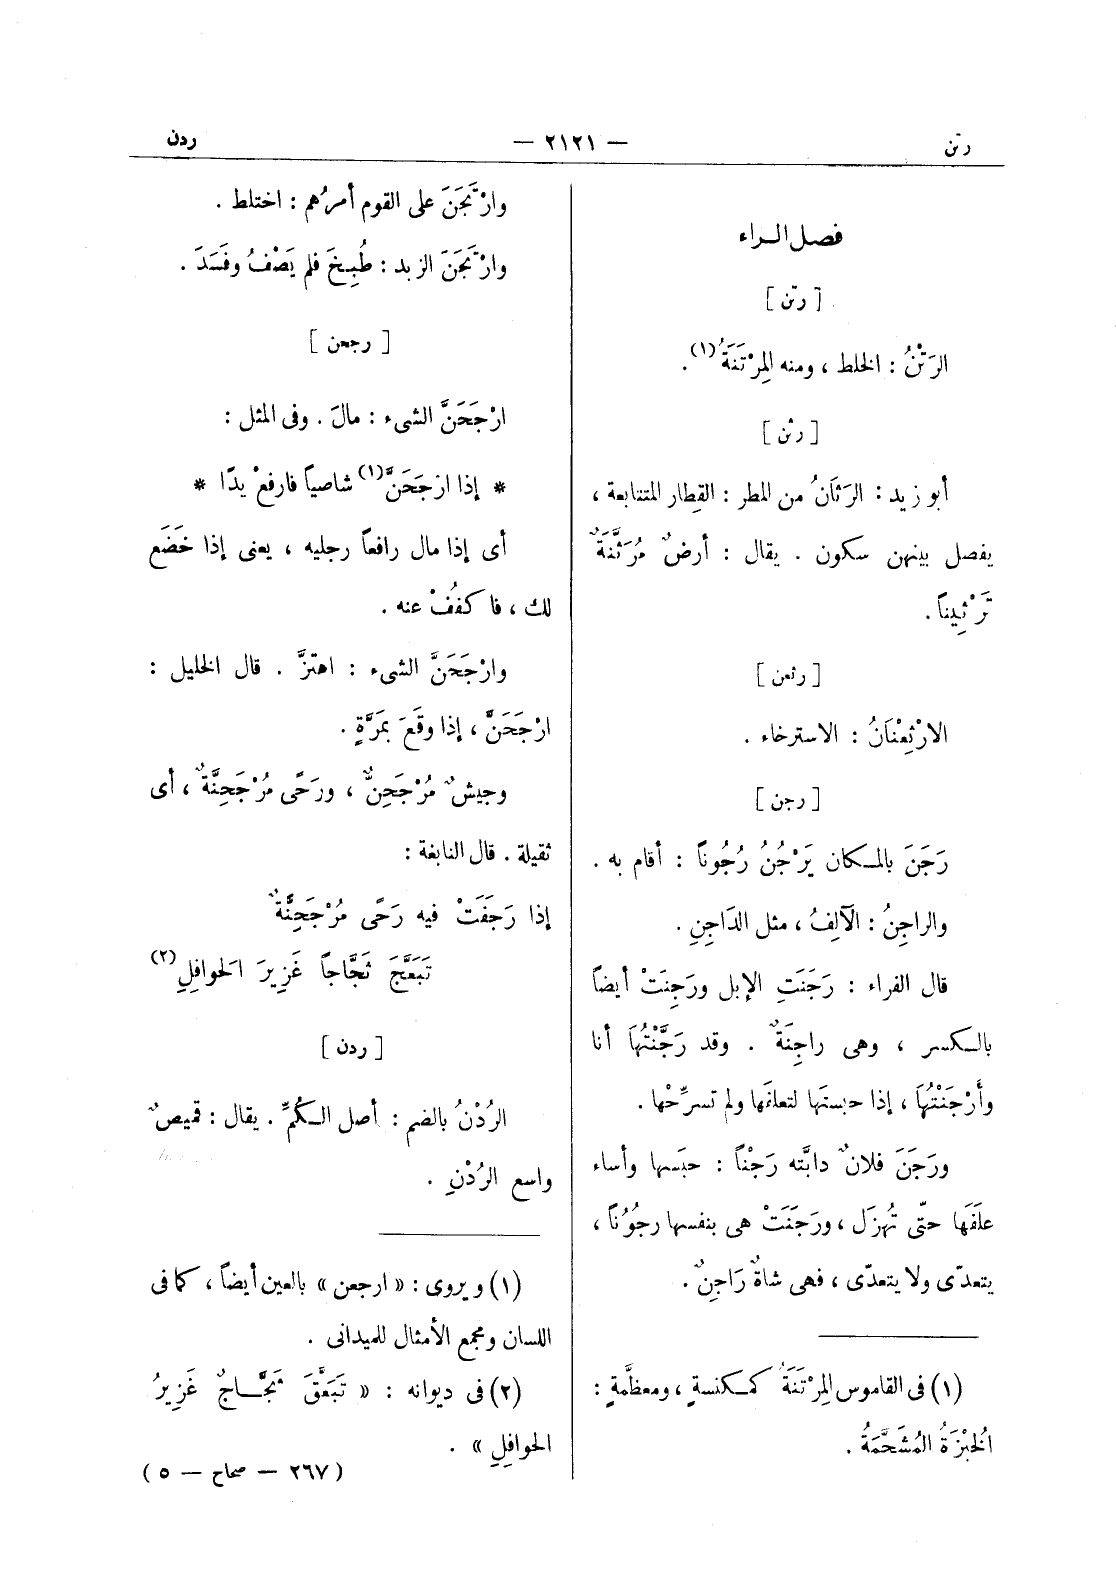 رتن
— ٢١٢١ —
ردن
فصل الراء
[ رتن ]
الرَتْنُ : الخلط ، ومنه المِرْتَنَةُ (١) .
[ رثن ]
أبو زيد : الرَثَانُ من المطر : القِطار المتتابعة ،
يفصل بينهن سكون . يقال : أرضٌ مُرَثَّنَةٌ
تَرْثِيناً .
[ رثعن ]
الارْثِعْنَانُ : الاسترخاء .
[ رجن ]
رَجَنَ بالمكان يَرْجُنُ رُجُوناً : أقام به .
والراجِنُ : الآلِفُ ، مثل الدَاجِنِ .
قال الفراء : رَجَنَتِ الإبل ورَجِنَتْ أيضاً
بالكسر ، وهى راجِنَةٌ . وقد رَجَنْتُهَا أنا
وأَرْجَنْتُهَا ، إذا حبستها لتعلفَها ولم تسرِّحْها .
ورَجَنَ فلانٌ دابَّته رَجْناً : حبَسها وأساء
علَفَها حتّى تُهزَل ، ورَجَنَتْ هى بنفسها رجُوناً ،
يتعدّى ولا يتعدّى ، فهى شاةٌ رَاجِنٌ .
(١) فى القاموس المِرْتَنَةُ كمكنسةٍ ، ومعظَّمةٍ :
الخبْزَةُ المُشَحَّمَةُ .
وارْتَجَنَ على القوم أمرُهم : اختلط .
وارْتَجَنَ الزبد : طُبِخَ فلم يَصْفُ وفَسَدَ .
[ رجحن ]
ارْجَحَنَّ الشىء : مالَ . وفى المثل :
* إذا ارْجَحَنَّ (١) شاصياً فارفعْ يدًا *
أى إذا مال رافعاً رجليه ، يعنى إذا خَضَع
لك ، فاكفُفْ عنه .
وارْجَحَنَّ الشىء : اهتزَّ . قال الخليل :
ارْجَحَنَّ ، إذا وقَعَ بمَرَّةٍ .
وجيشٌ مُرْجَحِنٌّ ، ورَحًى مُرْجَحِنَّةٌ ، أى
ثقيلة . قال النابغة :
إذا رَجَفَتْ فيه رَحًى مُرْجَحِنَّةٌ
تَبَعَّجَ ثَجَّاجاً غَزِيرَ الحوافِلِ (٢)
[ ردن ]
الرُدْنُ بالضم : أصل الكُمِّ . يقال : قميصٌ
واسع الرُدْنِ .
(١) ويروى : « ارجعن » بالعين أيضاً ، كما فى
اللسان ومجمع الأمثال للميدانى .
(٢) فى ديوانه : « تَبَعَّقَ ثَجَّاجٌ غَزِيرُ
الحوافِلِ » .
( ٢٦٧ — صحاح — ٥ )